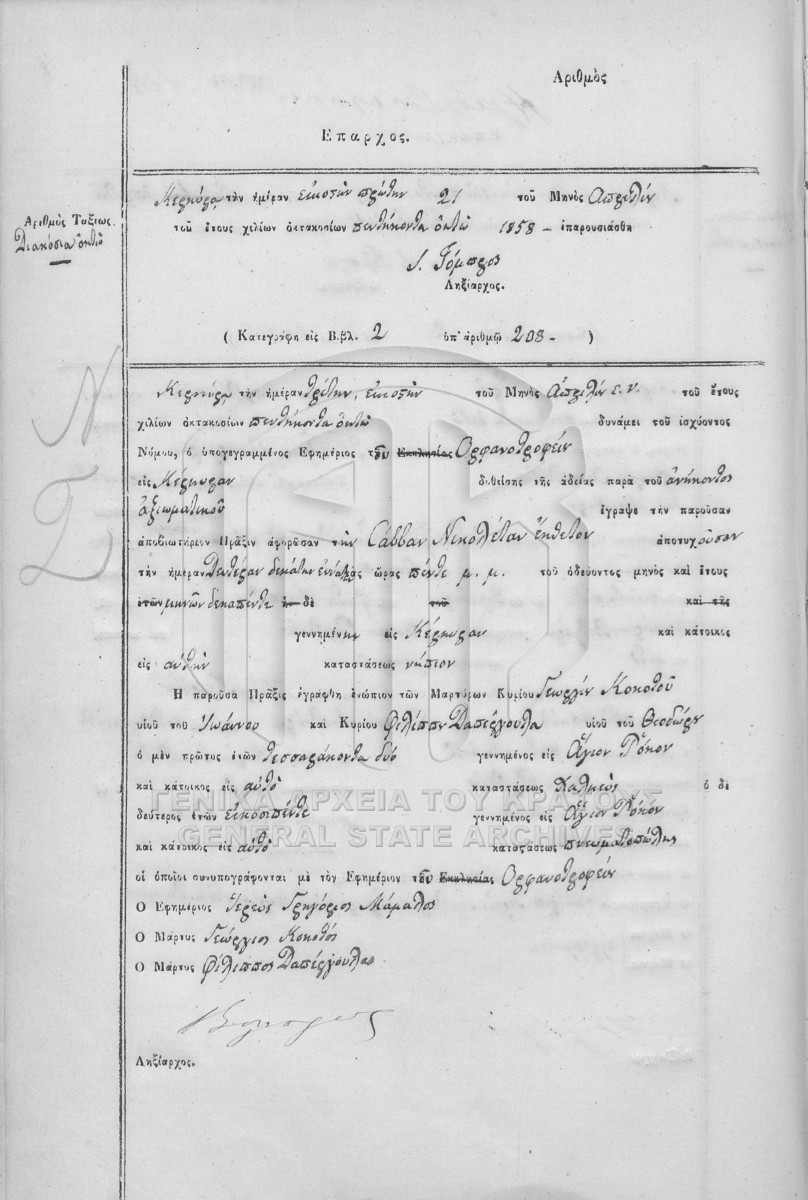 Ἀριθμὸς
Ἔπαρχος.
Ἀριθμὸς Τάξεως.
Διακόσια ὀκτὼ
Κερκύρᾳ τὴν ἡμέραν εἰκοστὴν πρώτην 21 τοῦ Μηνὸς Ἀπριλίου
τοῦ ἔτους χιλίων ὀκτακοσίων πεντήκοντα ὀκτὼ 1858 – ἐπαρουσιάσθη
Ληξίαρχος.
( Κατεγράφη εἰς Βιβλ. 2 ὑπ' ἀριθμῷ 208 – )
Κερκύρᾳ τὴν ἡμέραν τρίτην, εἰκοστὴν τοῦ Μηνὸς Ἀπριλίου ε. ν. τοῦ ἔτους
χιλίων ὀκτακοσίων πεντήκοντα ὀκτὼ δυνάμει τοῦ ἰσχύοντος
Νόμου, ὁ ὑπογεγραμμένος Ἐφημέριος τοῦ Ἐκκλησίας Ὀρφανοτροφείου
εἰς Κέρκυραν δοθείσης τῆς ἀδείας παρὰ τοῦ ἀνήκοντος
ἀξιωματικοῦ ἔγραψε τὴν παροῦσαν
ἀποβιωτήριον Πρᾶξιν ἀφορῶσαν τὴν Σάββαν Νικολέταν ἔκθετον ἀποτυχοῦσαν
τὴν ἡμέραν Δευτέραν δεκάτην ἐννάτην ὥρας πέντε μ. μ. τοῦ ὁδεύοντος μηνὸς καὶ ἔτους
ἐτῶν μηνῶν δεκαπέντε ἡ δὲ τοῦ καὶ τῆς
γεννημένη εἰς Κέρκυραν καὶ κάτοικος
εἰς αὐτὴν καταστάσεως νήπιον
Ἡ παροῦσα Πρᾶξις ἐγράφθη ἐνώπιον τῶν Μαρτύρων Κυρίου Γεωργίου Κοκοτοῦ
υἱοῦ τοῦ Ἰωάννου καὶ Κυρίου Φιλίππου Δαπέργουλα υἱοῦ τοῦ Θεοδώρου
ὁ μὲν πρῶτος ἐτῶν τεσσαράκοντα δύο γεννημένος εἰς Ἅγιον Ῥόκον
καὶ κάτοικος εἰς αὐτὸ καταστάσεως Χαλκεὺς ὁ δὲ
δεύτερος ἐτῶν εἰκοσιπέντε γεννημένος εἰς Ἅγιον Ῥόκον
καὶ κάτοικος εἰς αὐτὸ καταστάσεως πνευματοπώλης
οἱ ὁποῖοι συνυπογράφονται μὲ τὸν Ἐφημέριον τοῦ Ἐκκλησίας Ὀρφανοτροφείου
Ὁ Ἐφημέριος Ἱερεὺς Γρηγόριος Μάμαλος
Ὁ Μάρτυς Γεώργιος Κοκοτός
Ὁ Μάρτυς Φίλιππος Δαπέργουλας
Ληξίαρχος.
ΓΕΝΙΚΑ ΑΡΧΕΙΑ ΤΟΥ ΚΡΑΤΟΥΣ
GENERAL STATE ARCHIVES